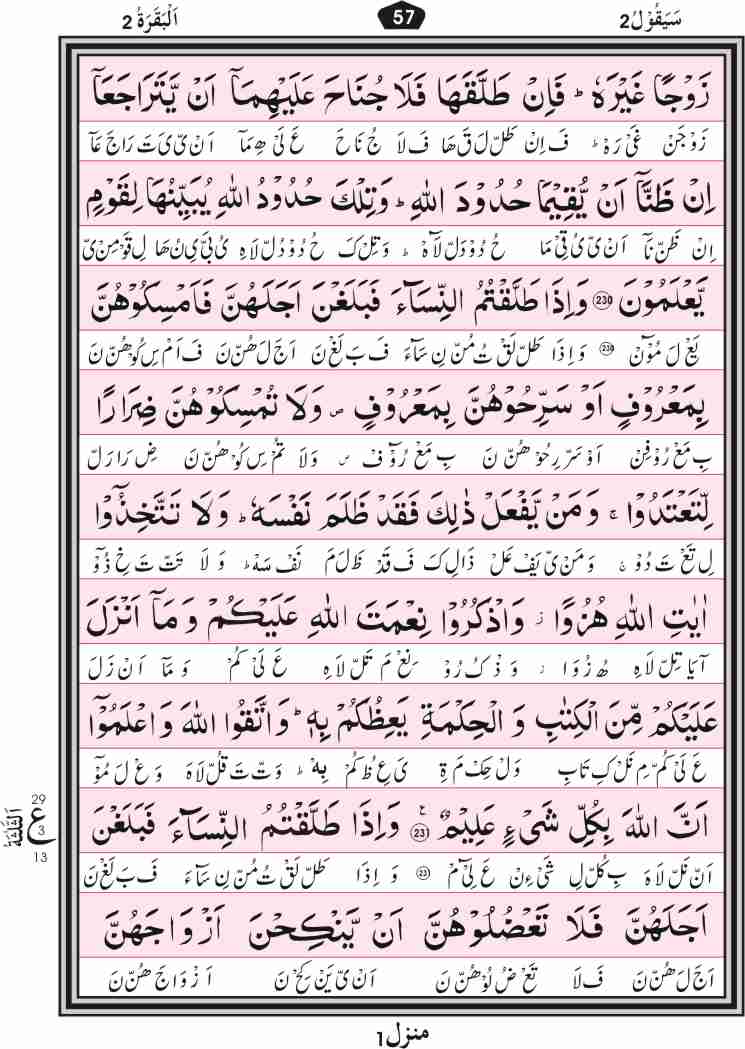 سَيَقُوْلُ2
57
اَلْبَقَرَةُ 2
زَوْجًا غَيْرَهٗ ؕ فَاِنْ طَلَّقَهَا فَلَا جُنَاحَ عَلَيْهِمَاۤ اَنْ يَّتَرَاجَعَاۤ
زَوْ جَنْ غَیْ رَہْ ؕ فَ اِنْ طَلْ لَ قَ ھَا فَ لَا جُ نَا حَ عَ لَیْ ھِ مَآ اَنْ یْ یَ تَ رَا جَ عَآ
اِنْ ظَنَّاۤ اَنْ يُّقِيْمَا حُدُوْدَ اللّٰهِ ؕ وَتِلْكَ حُدُوْدُ اللّٰهِ يُبَيِّنُهَا لِقَوْمٍ
اِنْ ظَنْ نَآ اَنْ یْ یُ قِیْ مَا حُ دُوْ دَلْ لَاہْ ؕ وَ تِلْ کَ حُ دُوْ دُلْ لَاہِ یُ بَیْ یِ نُ ھَا لِ قَوْ مِنْ یْ
يَّعْلَمُوْنَ 230 وَاِذَا طَلَّقْتُمُ النِّسَآءَ فَبَلَغْنَ اَجَلَهُنَّ فَاَمْسِكُوْهُنَّ
یَعْ لَ مُوْٓنْ 230 وَ اِذَا طَلْ لَقْ تُ مُنْ نِ سَآءَ فَ بَ لَغْ نَ اَ جَ لَ ھُنْ نَ فَ اَمْ سِ کُوْ ھُنْ نَ
بِمَعْرُوْفٍ اَوْ سَرِّحُوْهُنَّ بِمَعْرُوْفٍ ص وَلَا تُمْسِكُوْهُنَّ ضِرَارًا
بِ مَعْ رُوْ فِنْ اَوْ سَرْ رِ حُوْ ھُنْ نَ بِ مَعْ رُوْٓ فْ ص وَ لَا تُمْ سِ کُوْ ھُنْ نَ ضِ رَا رَلْ
لِّتَعْتَدُوْا ۚ وَمَنْ يَّفْعَلْ ذٰلِكَ فَقَدْ ظَلَمَ نَفْسَهٗ ؕ وَلَا تَتَّخِذُوْۤا
لِ تَعْ تَ دُوْ ۚ وَ مَنْ یْ یَفْ عَلْ ذَالِ کَ فَ قَدْ ظَ لَ مَ نَفْ سَہْ ؕ وَ لَا تَتْ تَ خِ ذُوْٓ
اٰيٰتِ اللّٰهِ هُزُوًا ز وَّاذْكُرُوْا نِعْمَتَ اللّٰهِ عَلَيْكُمْ وَمَاۤ اَنْزَلَ
آیَا تِلْ لَاہِ ھُ زُ وَا ز وَ ذْ کُ رُوْ نِعْ مَ تَلْ لَاہِ عَ لَیْ کُمْ وَ مَآ اَنْ زَلَ
عَلَيْكُمْ مِّنَ الْكِتٰبِ وَ الْحِكْمَةِ يَعِظُكُمْ بِهٖ ؕ وَاتَّقُوا اللّٰهَ وَاعْلَمُوْۤا
عَ لَیْ کُمْ مِ نَلْ کِ تَابِ وَلْ حِکْ مَ ةِ یَ عِ ظُ کُمْ بِہْ ؕ وَتْ تَ قُلْ لَاہَ وَعْ لَ مُوْٓ
اَنَّ اللّٰهَ بِكُلِّ شَيْءٍ عَلِيْمٌ 23 وَاِذَا طَلَّقْتُمُ النِّسَآءَ فَبَلَغْنَ
اَنْ نَلْ لَاہَ بِ کُلْ لِ شَیْ ءِنْ عَ لِیْٓمْ 23 وَ اِذَا طَلْ لَقْ تُ مُنْ نِ سَآءَ فَ بَ لَغْ نَ
اَجَلَهُنَّ فَلَا تَعْضُلُوْهُنَّ اَنْ يَّنْكِحْنَ اَزْوَاجَهُنَّ
اَ جَ لَ ھُنْ نَ فَ لَا تَعْ ضُ لُوْ ھُنْ نَ اَنْ یْ یَنْ کِحْ نَ اَزْ وَا جَ ھُنْ نَ
29
ع
3
13
الثلثة
منزل1